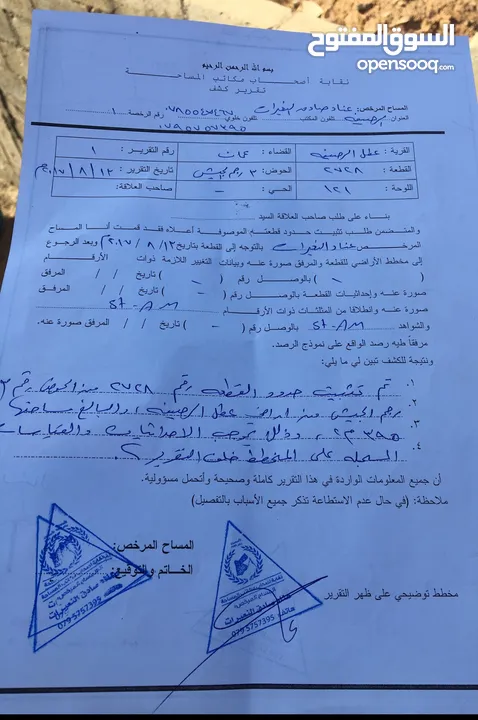 السوق المفتوح
opensooq.com
بسم الله الرحمن الرحيم
نقابة أصحاب مكاتب المساحة
تقرير كشف
المساح المرخص: عناد صادق النعيرات
العنوان تلفون المكتب تلفون خلوي رقم الرخصة ١
٠٧٩٥٧٥٧٣٩٥
القرية: القضاء: عمان رقم التقرير: ١
القطعة: ٢٧٢٨ الحوض: ٣ تاريخ التقرير: ٢٠١٧/٨/١٣م
اللوحة: ١٢١ الحي: - صاحب العلاقة:
بناء على طلب صاحب العلاقة السيد
والمتضمن طلب تثبيت حدود قطعتهم الموصوفة أعلاه فقد قمت أنا المساح
المرخص عناد النعيرات بالتوجه إلى القطعة بتاريخ (٢٠١٧/٨/١٣) وبعد الرجوع
إلى مخطط الأراضي للقطعة والمرفق صورة عنه وبيانات التغيير اللازمة ذوات الأرقام
( - ) بالوصل رقم ( - ) تاريخ / / المرفق
صورة عنه وإحداثيات القطعة بالوصل رقم ( - ) تاريخ / / المرفق
صورة عنه وانطلاقا من المثلثات ذوات الأرقام St-AM
والشواهد St-AM بالوصل رقم ( - ) تاريخ / / المرفق صورة عنه.
مرفقاً طيه رصد الواقع على نموذج الرصد.
ونتيجة للكشف تبين لي ما يلي:
١. تم تثبيت حدود القطعة رقم ٢٧٢٨ من الحوض رقم ٣
٢. من اراضي والبالغ مساحتها
٣. ٣٩٥ م٢، وذلك بموجب الاحداثيات والقياسات
٤. المسجلة على المخطط خلف التقرير.
أن جميع المعلومات الواردة في هذا التقرير كاملة وصحيحة وأتحمل مسؤولية.
ملاحظة: (في حال عدم الاستطاعة تذكر جميع الأسباب بالتفصيل)
المساح المرخص:
الخاتم والتوقيع:
مخطط توضيحي على ظهر التقرير
عناد صادق النعيرات
079 5757395
عناد صادق النعيرات
هاتف 079 5757395